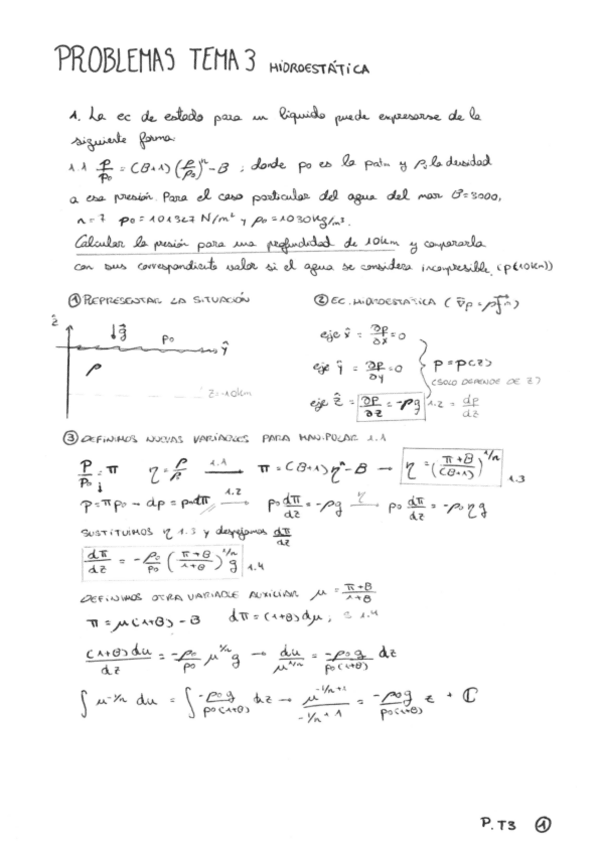 PROBLEMAS TEMA 3 HIDROESTÁTICA
1. La ec de estado para un líquido puede expresarse de la
siguiente forma:
1.1 P/P₀ = (B+1) (ρ/ρ₀)ⁿ - B ; donde p₀ es la patm y ρ₀ la densidad
a esa presión. Para el caso particular del agua del mar B=3000,
n=7 p₀=101327 N/m² y ρ₀=1030kg/m³.
Calcular la presión para una profundidad de 10km y compararla
con sus correspondiente valor si el agua se considera incompresible. (p(10km))
① REPRESENTAR LA SITUACIÓN
ẑ
↓g⃗
P₀
ŷ
ρ
z=-10km
② EC. HIDROESTÁTICA (∇̄p = ρf⃗m)
eje x̂ = ∂p/∂x = 0
eje ŷ = ∂p/∂y = 0
eje ẑ = ∂p/∂z = -ρg 1.2 = dp/dz
p = p(z)
(SOLO DEPENDE DE z)
③ DEFINIMOS NUEVAS VARIABLES PARA MANIPULAR 1.1
P/P₀ = π η = ρ/ρ₀ 1.1→ π = (B+1)ηⁿ - B → η = (π+B/(B+1))^1/n 1.3
P = πp₀ → dp = p₀dπ 1.2→ p₀ dπ/dz = -ρg η→ p₀ dπ/dz = -ρ₀ηg
SUSTITUIMOS η 1.3 y despejamos dπ/dz
dπ/dz = -ρ₀/p₀ (π+B/1+B)^1/n g 1.4
DEFINIMOS OTRA VARIABLE AUXILIAR μ = π+B/1+B
π = μ(1+B) - B dπ = (1+B)dμ ; 1.4
(1+B)dμ/dz = -ρ₀/p₀ μ^1/n g → dμ/μ^1/n = -ρ₀g/p₀(1+B) dz
∫ μ^-1/n dμ = ∫ -ρ₀g/p₀(1+B) dz → μ^-1/n+1/-1/n+1 = -ρ₀g/p₀(1+B) z + ℂ
P.T3 ①